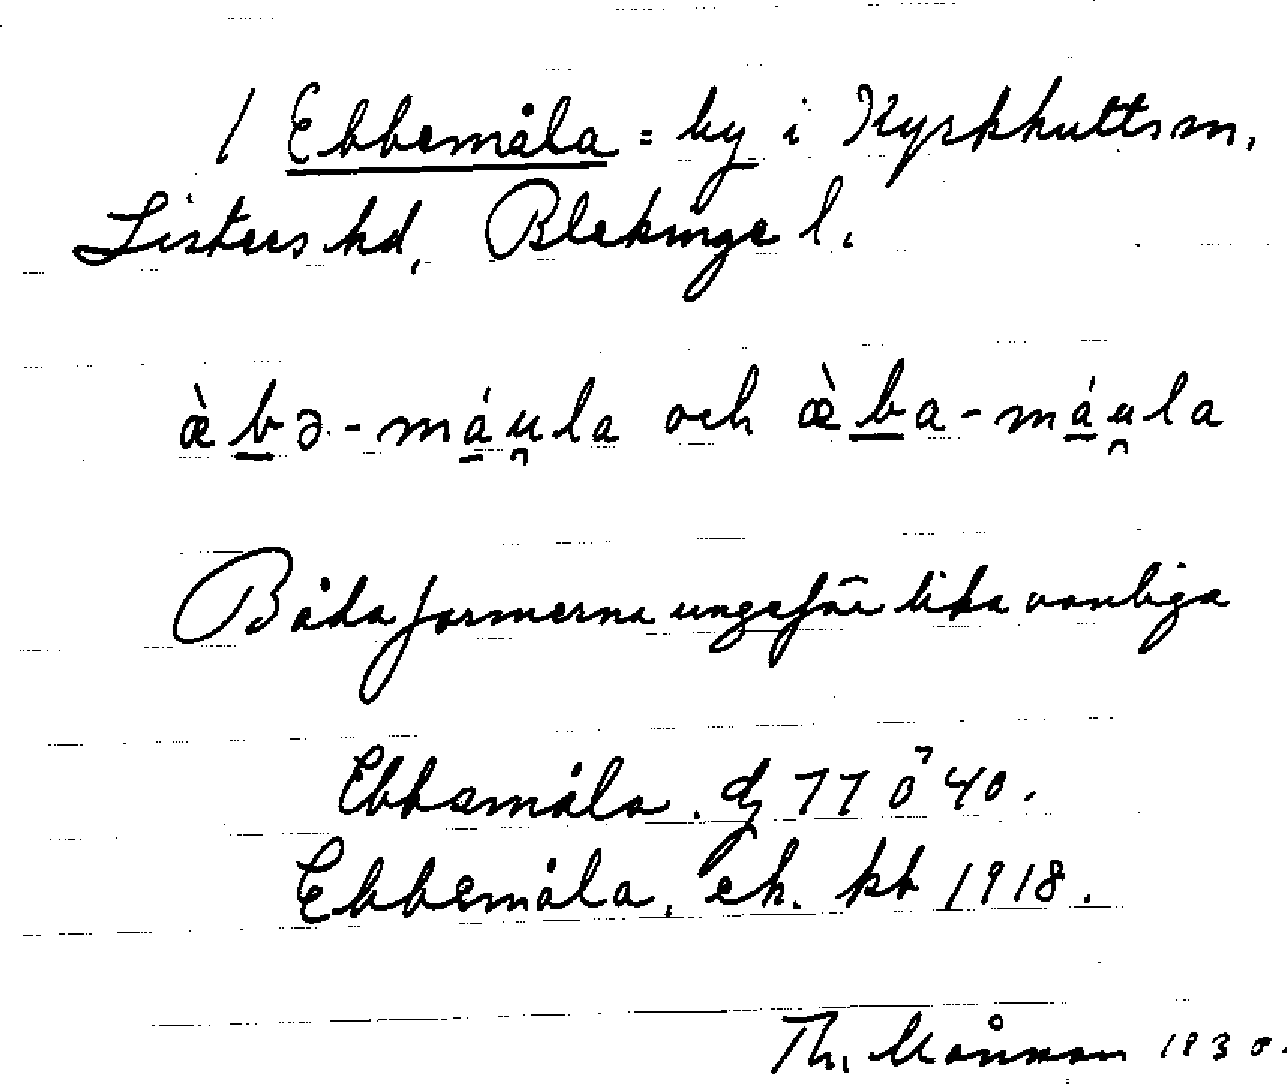 1 Ebbemåla = by i Kyrkhults sn,
Listers hd, Blekinge l.
æ̀b̲ə-má̲u̯la och æ̀b̲a-má̲u̯la
Båda formerna ungefär lika vanliga
Ebbemåla. g 77 ö 40.
Ebbemåla, ek. kb 1918.
Th. 1930.